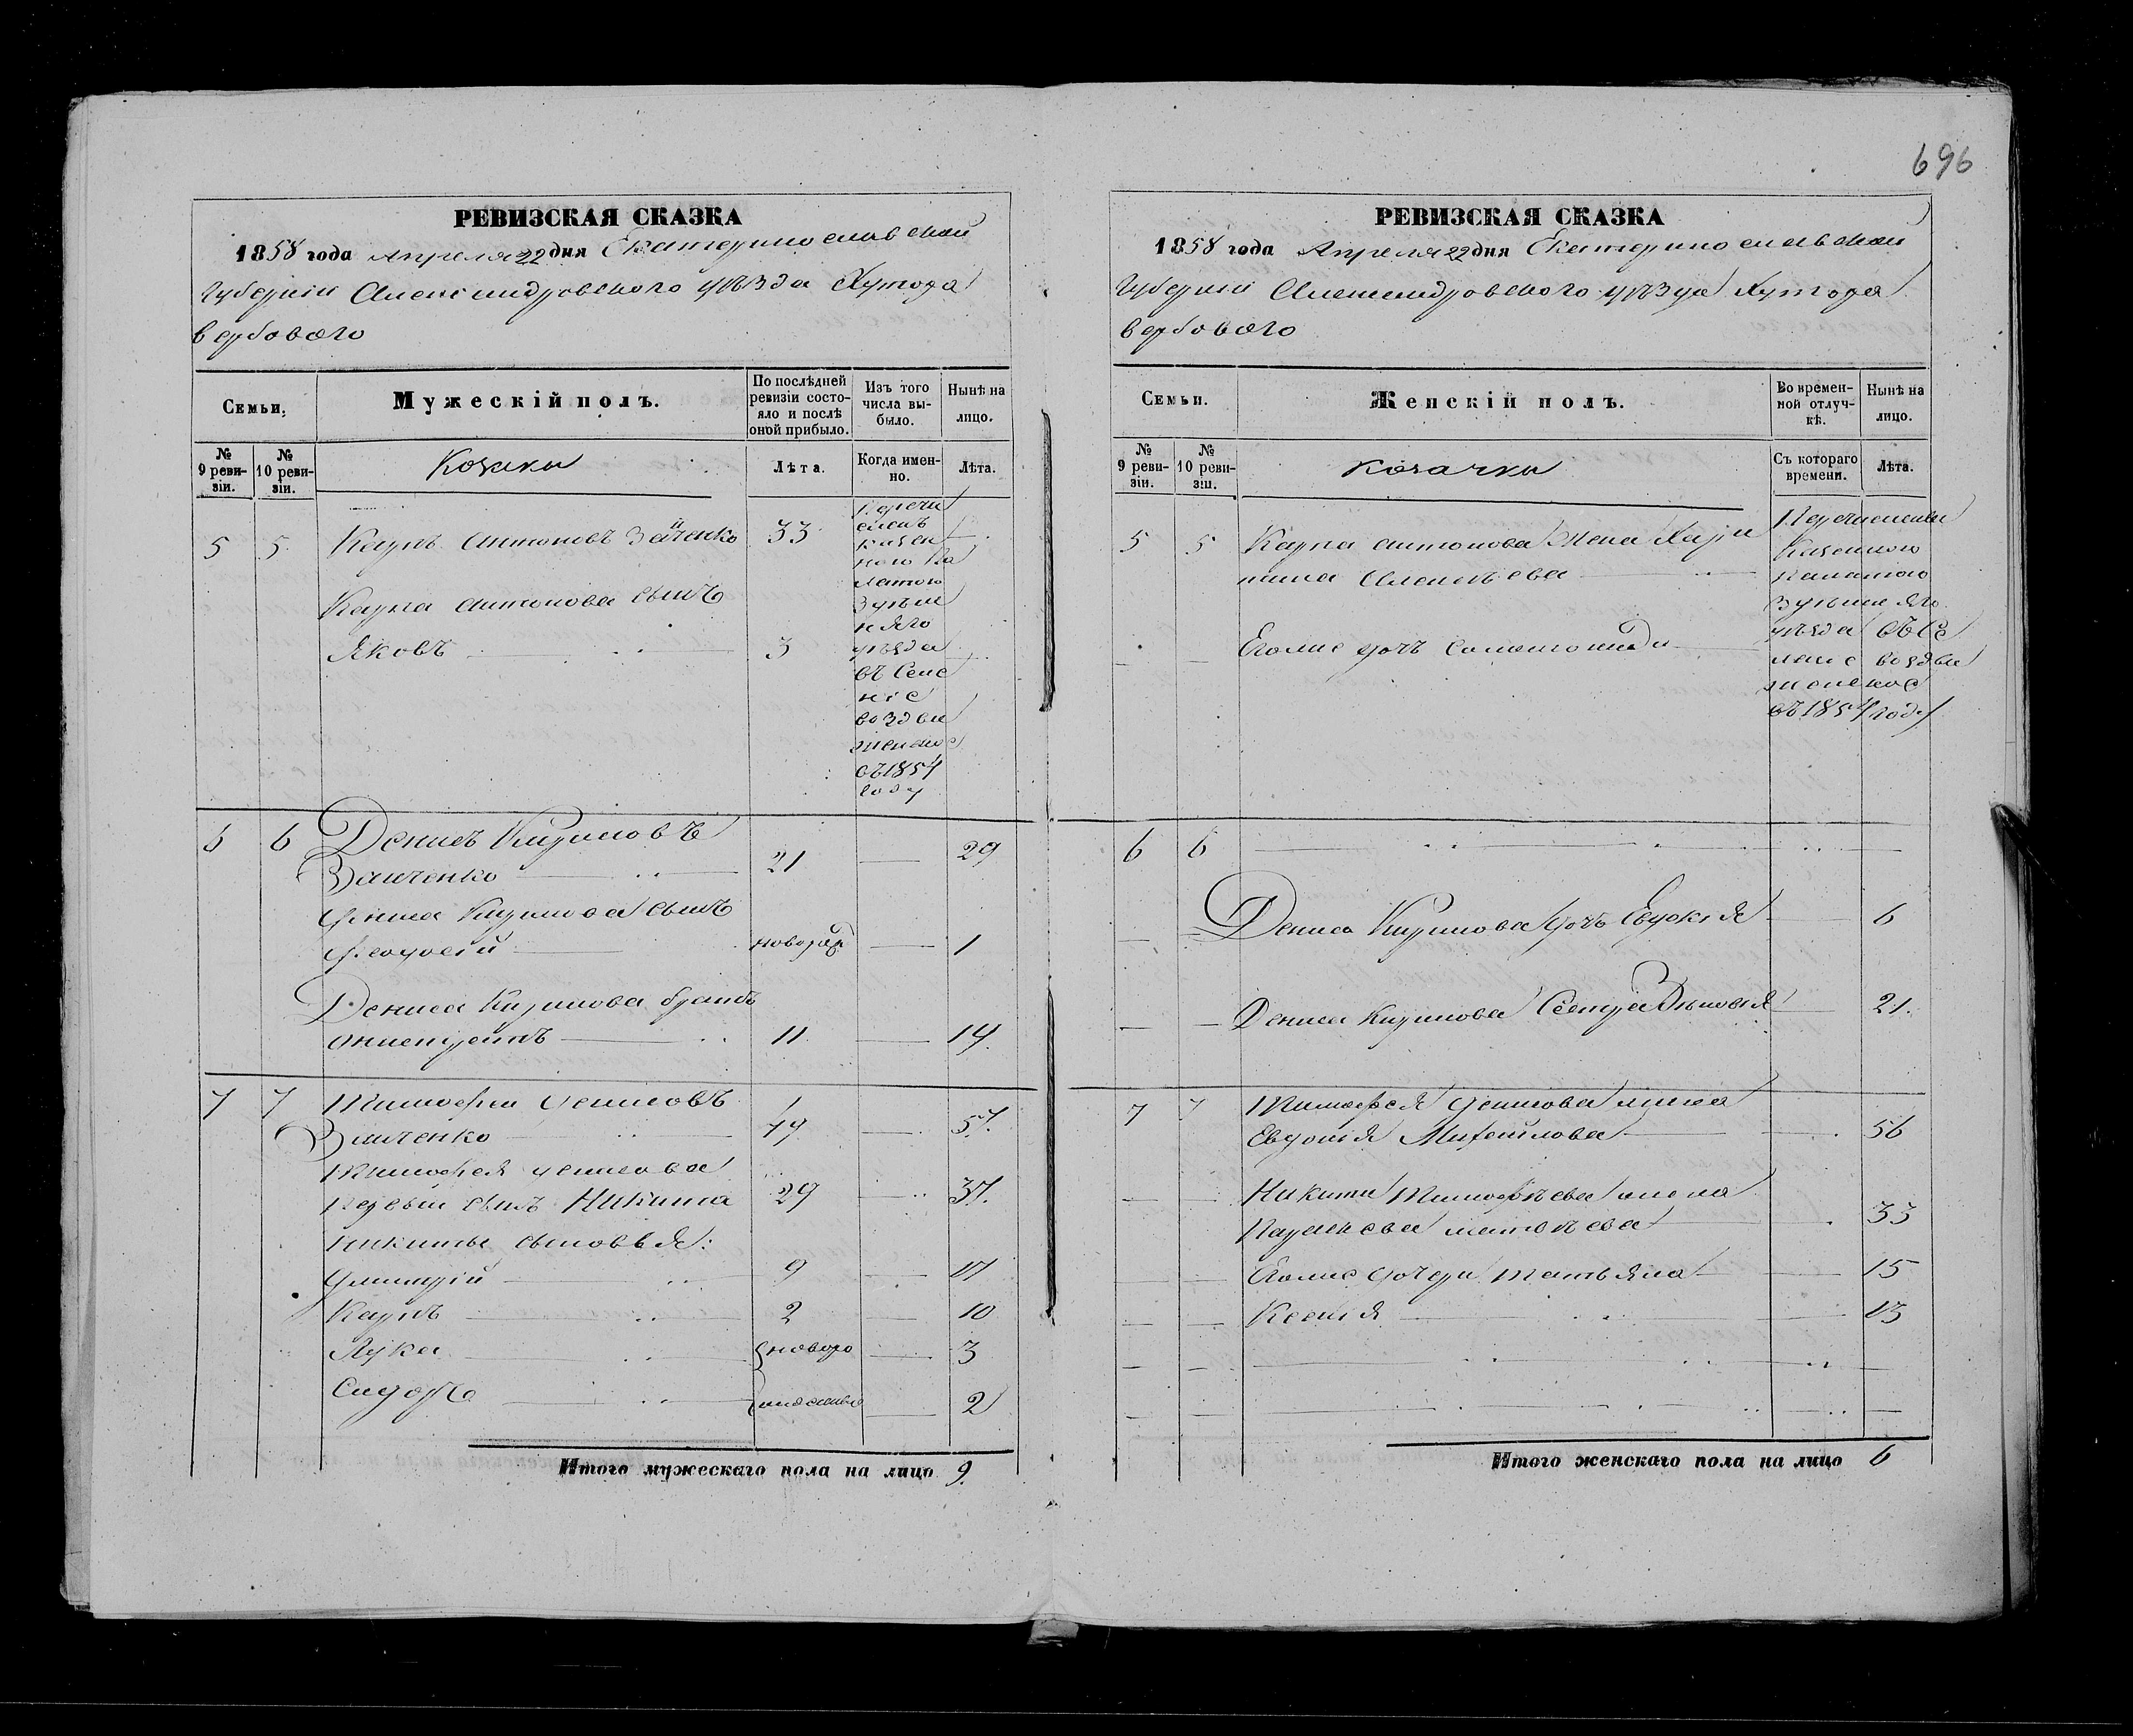 696
РЕВИЗСКАЯ СКАЗКА
1858 года Апреля 22 дня Екатеринославской
Губернии Александровского уѣзда Хутора
Вербового
Семьи.
Мужескій полъ.
По послѣдней ревизіи состояло и послѣ оной прибыло.
Изъ того числа выбыло.
Нынѣ на лицо.
№ 9 ревизіи.
№ 10 ревизіи.
Козаки
Лѣта.
Когда именно.
Лѣта.
5 5 Карпъ Антоновъ Зайченко 33
Перечи
сленъ
казен
ного
Карпа Антонова сынъ
Яковъ 3
уѣзда
въ
воздви
въ 1854
году
6 6 Денисъ Кириловъ
Заиченко 21 — 29
Дениса Кирилова сынъ
Феодосій новорож — 1
Дениса Кирилова братъ
11 — 19
7 7 Тимофей Денисовъ
Заиченко 49 — 57.
Тимофея Денисова
первый сынъ Никита 29 — 37.
Никиты сыновья:
Дмитрій 9 — 17
Карпъ 2 — 10
Лука новоро — 3
Сидоръ жденные — 2
Итого мужескаго пола на лицо 9.
РЕВИЗСКАЯ СКАЗКА
1858 года Апреля 22 дня Екатеринославской
Губернии Александровского уѣзда Хутора
Вербового
Семьи.
Женскій полъ.
Во временной отлучкѣ.
Нынѣ на лицо.
№ 9 ревизіи.
№ 10 ревизіи.
Козачки
Съ котораго времени.
Лѣта.
5 5 Карпа Антонова жена Хари
тина Алексѣева
Перечислены
Казенного
уѣзда въ Се
ленiе воздви
женское
въ 1854 году
— — Еголис дочь Соломонида
6 6 —
— — Дениса Кирилова дочь Евдокія — 6
— — Дениса Кирилова Сестра Зѣновія — 21.
7 7 Тимофея Денисова жена
Евдокія Михайлова — 56
— — Никиты Тимофѣева жена
Параскева Матвѣева — 33
— — Еголис дочери Татьяна — 15
— — Ксенія — 13
Итого женскаго пола на лицо 6